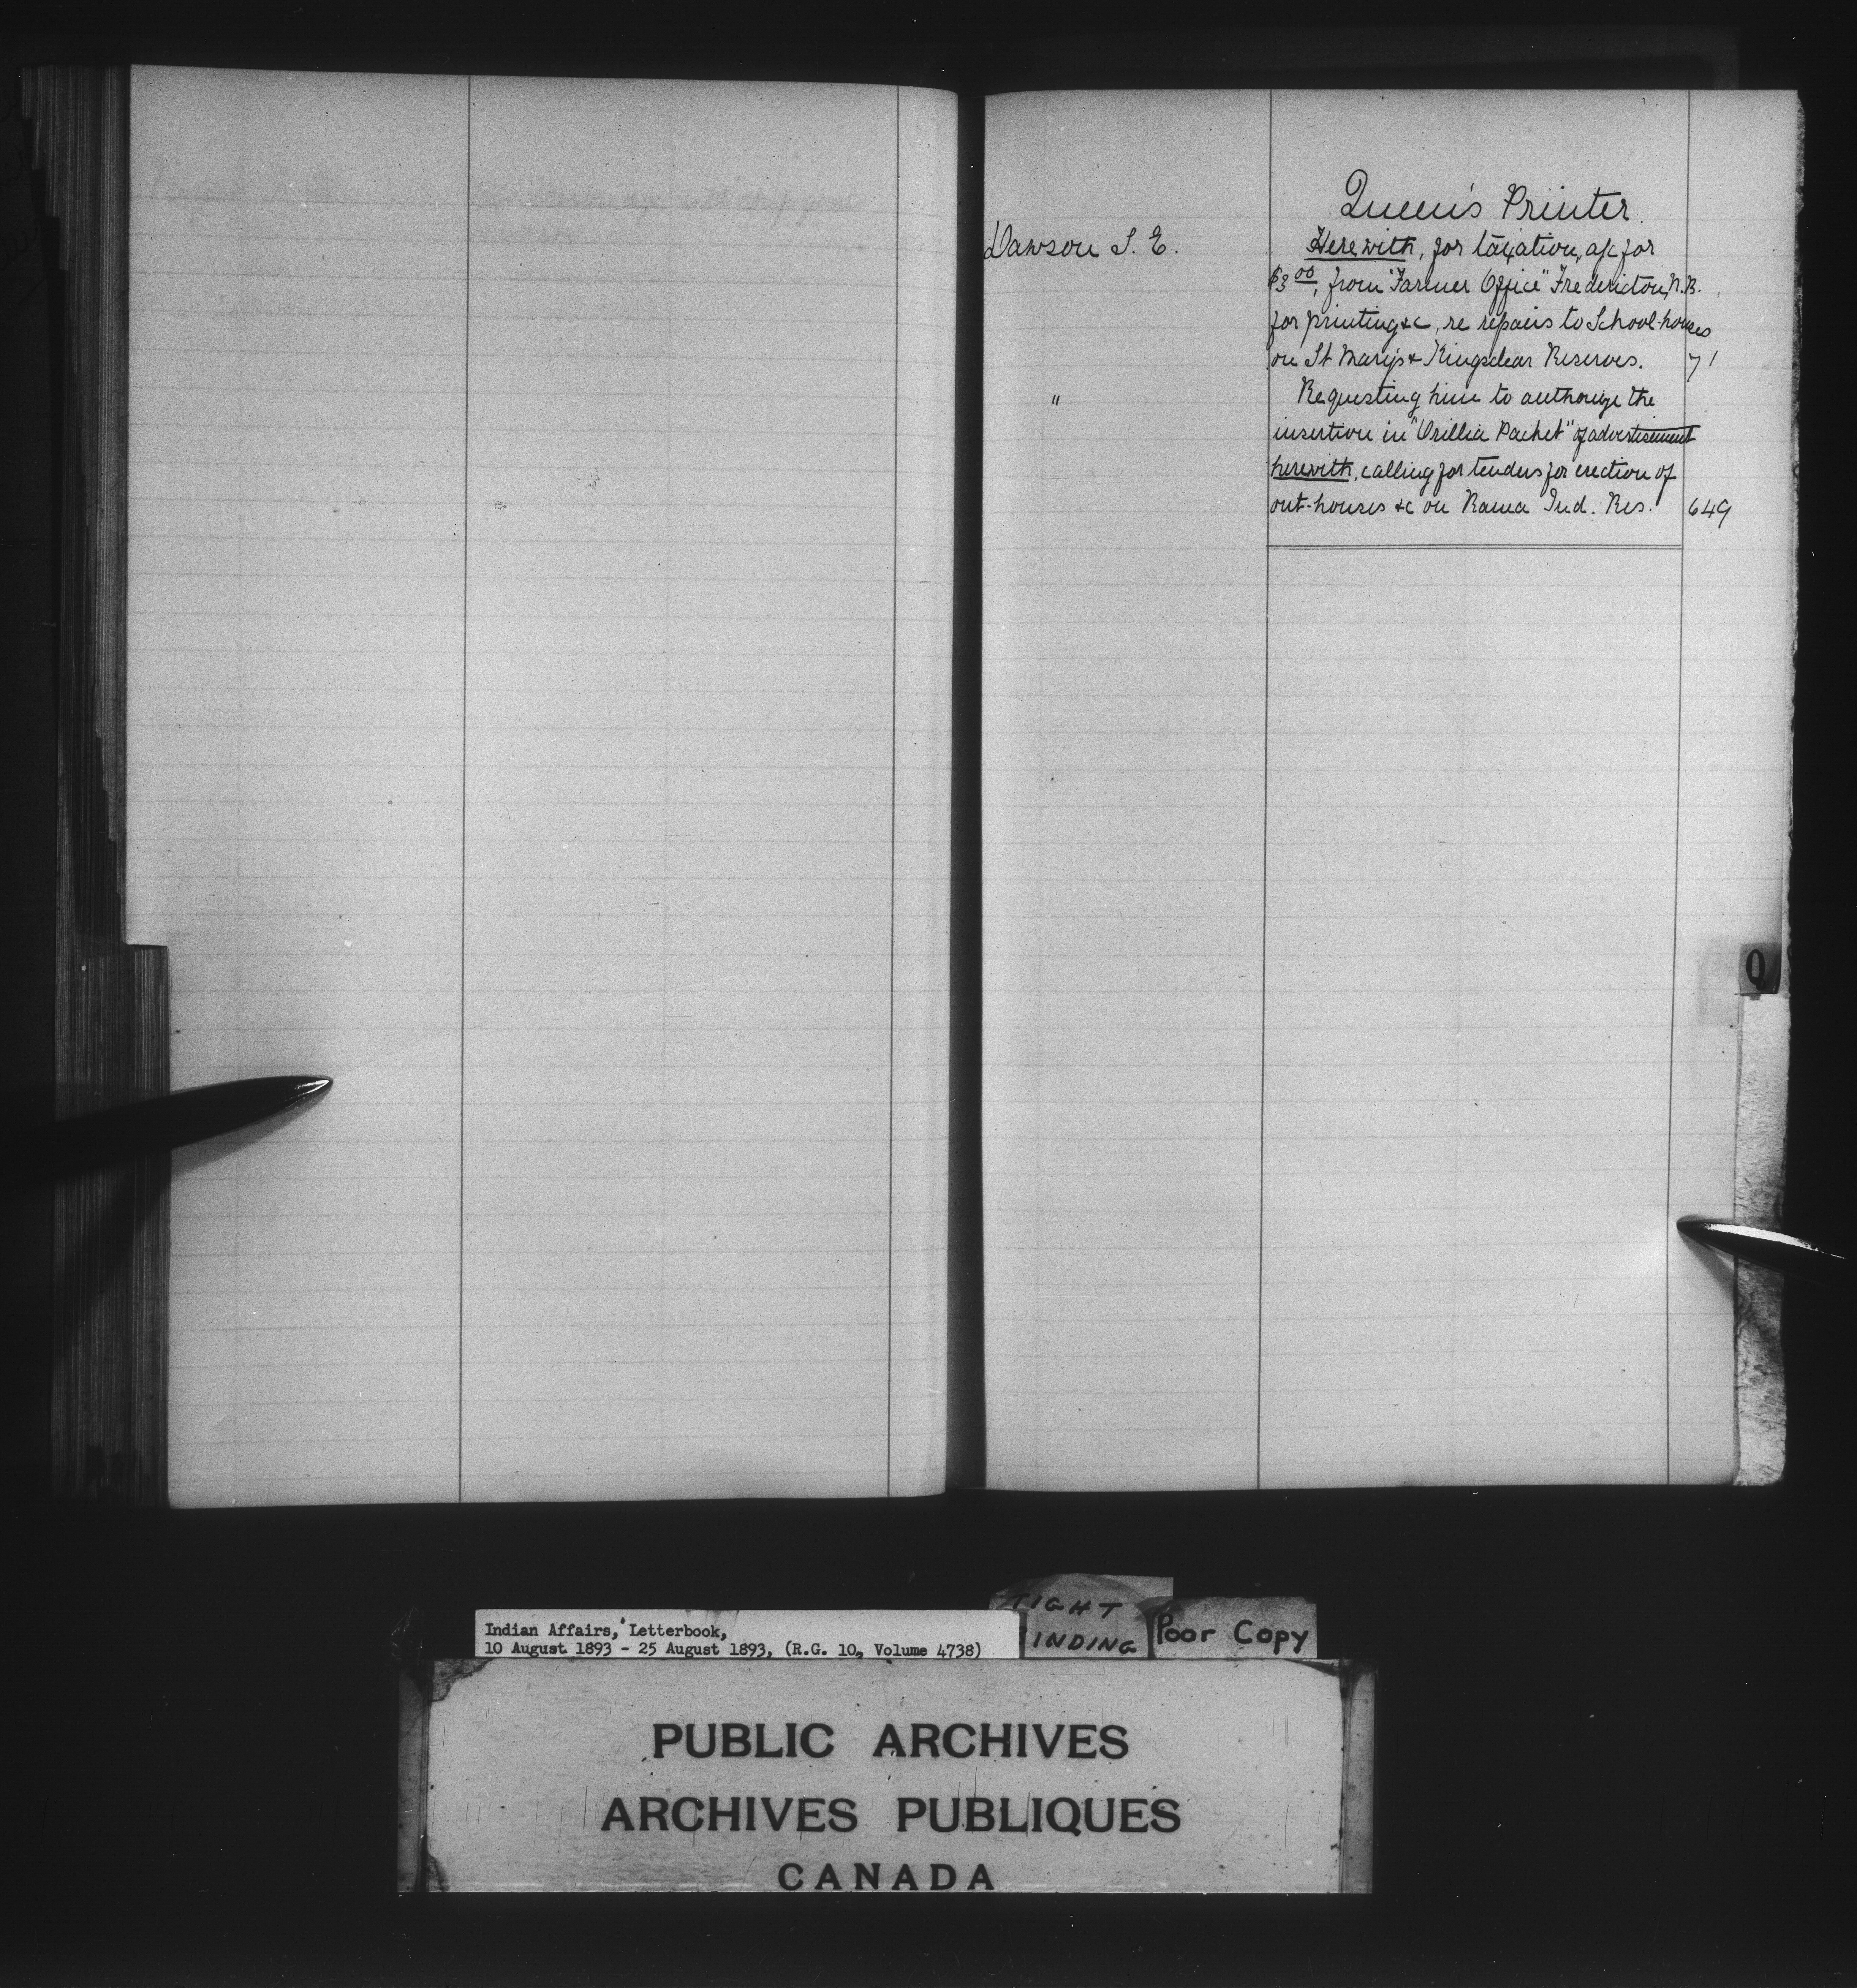 Queen's Printer.
Dawson S. E. Herewith, for taxation, a/c for
$3 00, from "Farmer Office" Fredericton, N.B.
for printing &c, re repairs to School-houses
on St Mary's & Kingsclear Reserves. 71
" Requesting him to authorize the
insertion in "Orillia Packet" of advertisement
herewith, calling for tenders for erection of
out-houses &c on Rama Ind. Res. 649
Q
TIGHT
INDING
Poor Copy
Indian Affairs, Letterbook,
10 August 1893 - 25 August 1893, (R.G. 10, Volume 4738)
PUBLIC ARCHIVES
ARCHIVES PUBLIQUES
CANADA